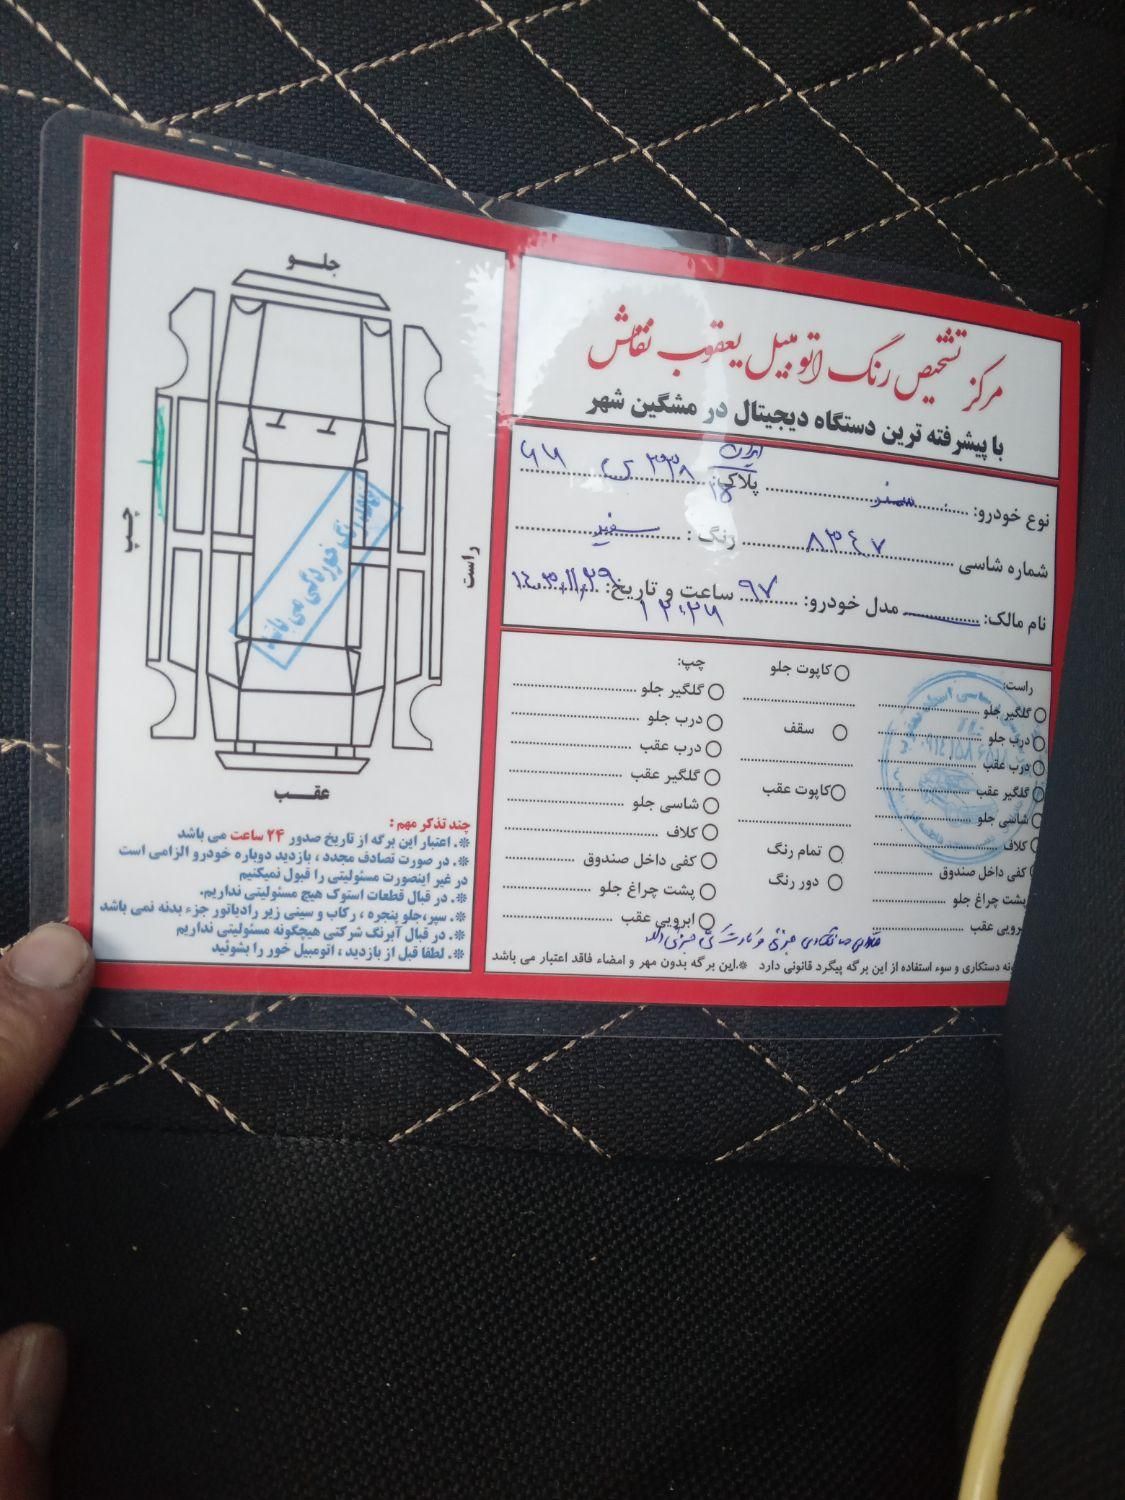 مرکز تشخیص رنگ اتومبیل یعقوب نقاش
با پیشرفته ترین دستگاه دیجیتال در مشگین شهر
نوع خودرو: سمند پلاک: ایران
شماره شاسی ۸۳۴۷ رنگ: سفید
نام مالک: مدل خودرو: ۹۷ ساعت و تاریخ:
راست:
گلگیر جلو
درب جلو
درب عقب
گلگیر عقب
شاسی جلو
کلاف
کفی داخل صندوق
پشت چراغ جلو
ابرویی عقب
کاپوت جلو
سقف
کاپوت عقب
تمام رنگ
دور رنگ
چپ:
گلگیر جلو
درب جلو
درب عقب
گلگیر عقب
شاسی جلو
کلاف
کفی داخل صندوق
پشت چراغ جلو
ابرویی عقب
گونه دستکاری و سوء استفاده از این برگه پیگرد قانونی دارد ※.این برگه بدون مهر و امضاء فاقد اعتبار می باشد
جلـو
چپ
راست
عقـب
چند تذکر مهم :
※. اعتبار این برگه از تاریخ صدور ۲۴ ساعت می باشد
※. در صورت تصادف مجدد ، بازدید دوباره خودرو الزامی است
در غیر اینصورت مسئولیتی را قبول نمیکنیم
※. در قبال قطعات استوک هیچ مسئولیتی نداریم.
※. سپر،جلو پنجره ، رکاب و سینی زیر رادیاتور جزء بدنه نمی باشد
※. در قبال آبرنگ شرکتی هیچگونه مسئولیتی نداریم
※. لطفا قبل از بازدید ، اتومبیل خور را بشوئید